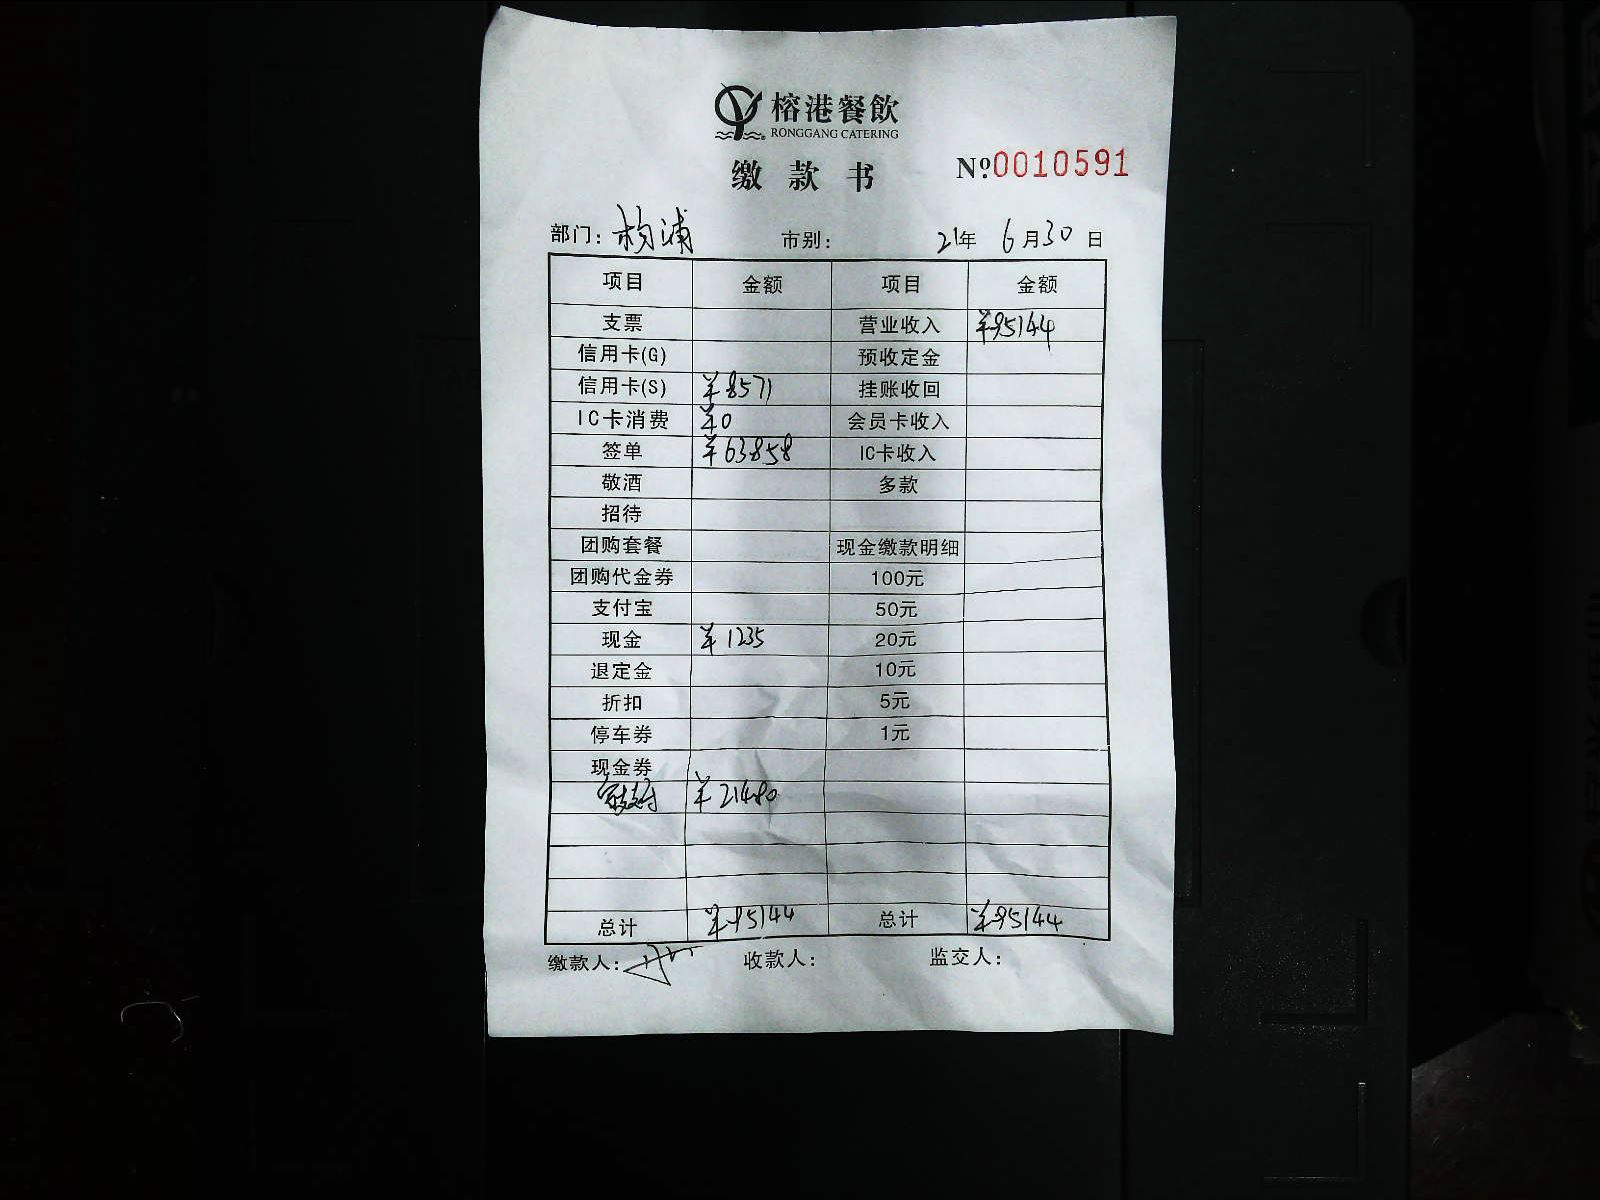 榕港餐飲
RONGGANG CATERING
缴款书
№0010591
部门: 杨浦 市别: 21年 6月30日
项目 金额 项目 金额
支票 营业收入 ¥95144
信用卡(G) 预收定金
信用卡(S) ¥8571 挂账收回
IC卡消费 ¥0 会员卡收入
签单 ¥63858 IC卡收入
敬酒 多款
招待
团购套餐 现金缴款明细
团购代金券 100元
支付宝 50元
现金 ¥1235 20元
退定金 10元
折扣 5元
停车券 1元
现金券
¥21480
总计 ¥95144 总计 ¥95144
缴款人: 收款人: 监交人: